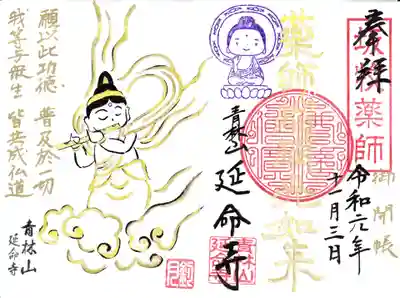 奉拝
薬師
御開帳
令和元年
十一月三日
薬師如来
青林山
延命寺
願以此功徳 普及於一切
我等与衆生 皆共成仏道
青林山
延命寺